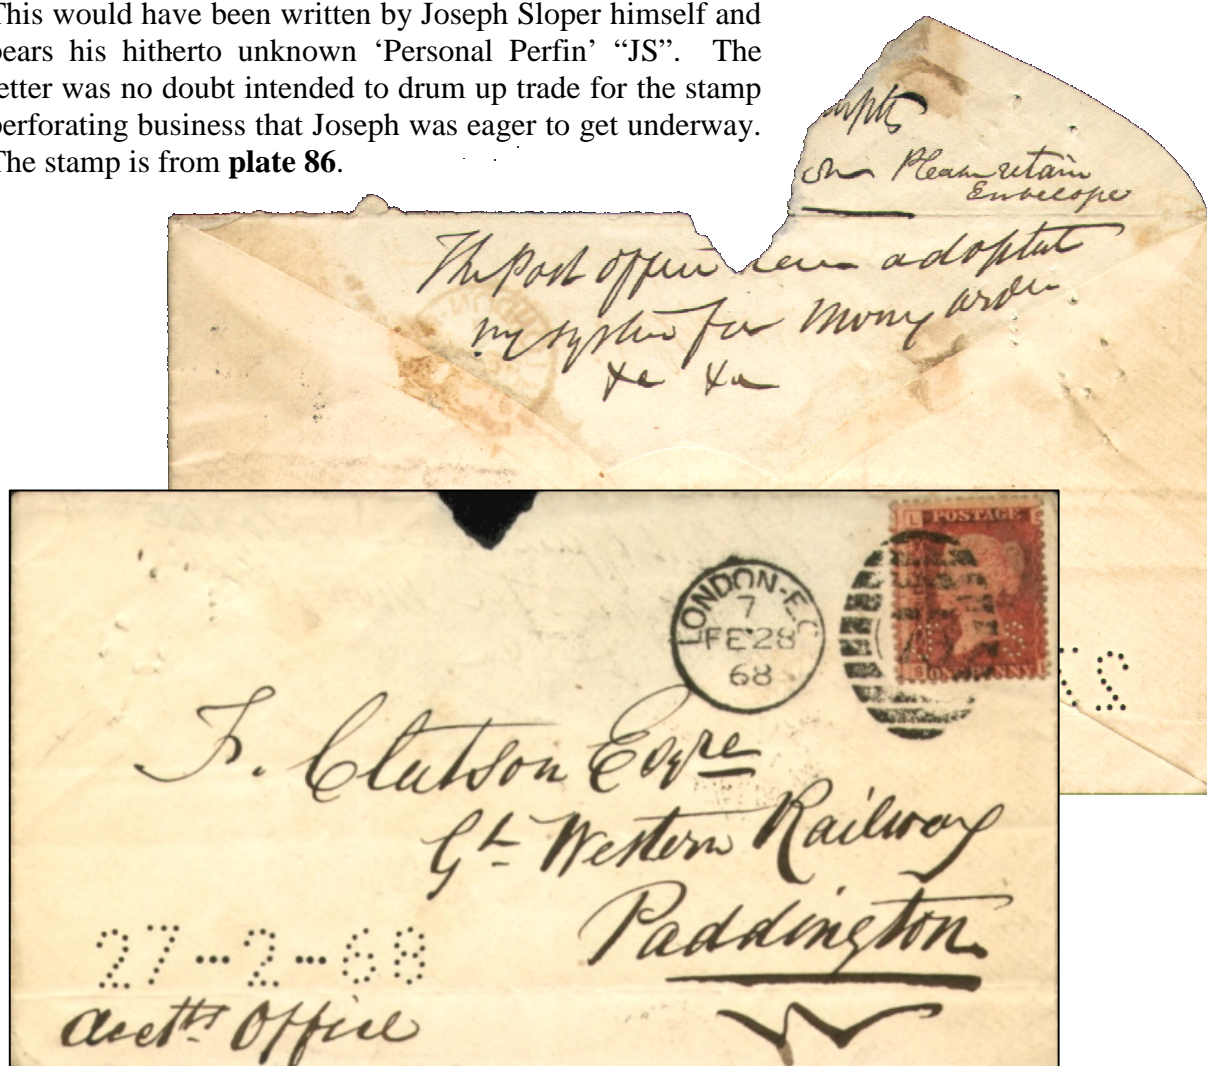 This would have been written by Joseph Sloper himself and
bears his hitherto unknown ‘Personal Perfin’ “JS”. The
letter was no doubt intended to drum up trade for the stamp
perforating business that Joseph was eager to get underway.
The stamp is from plate 86.
Please retain
Envelope
The Post Office have adopted
my system for Money orders
&c &c
LONDON-E.C
7
FE 28
68
L POSTAGE
S ONE PENNY L
F. Clutson Esqre
Gt Western Railway
Paddington
27-2-68
Acctts Office
W